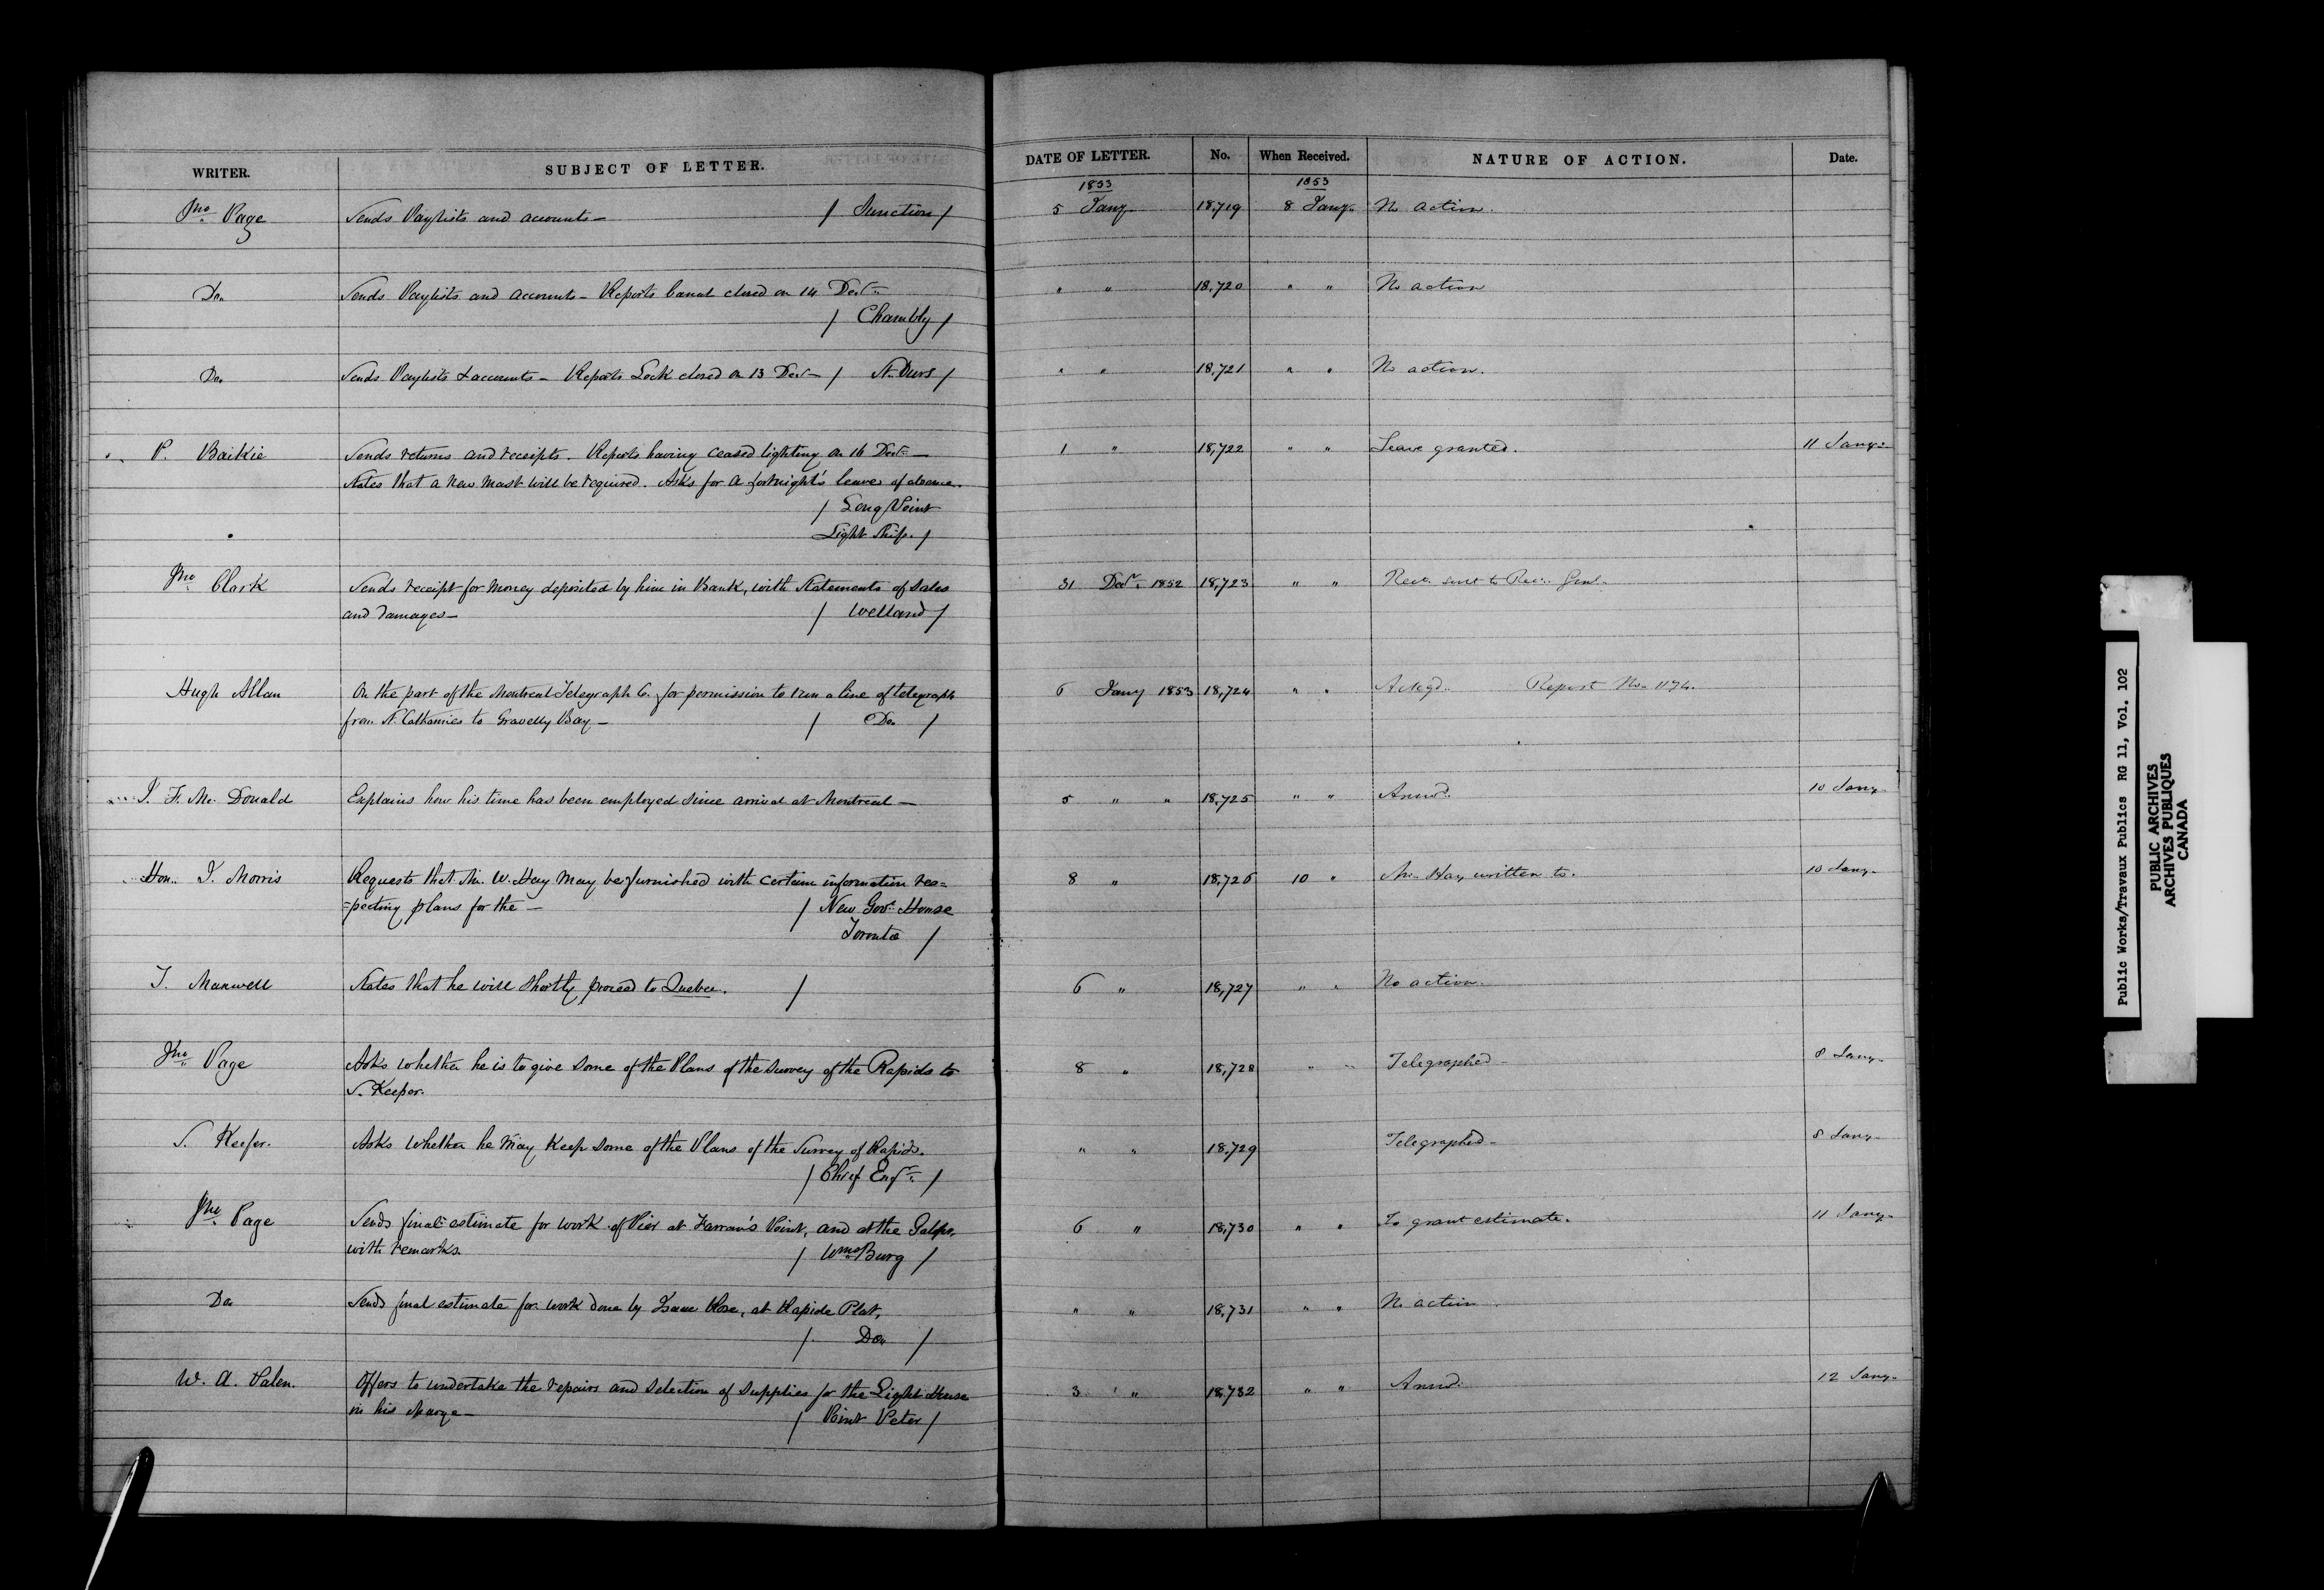 WRITER. SUBJECT OF LETTER. DATE OF LETTER. No. When Received. NATURE OF ACTION. Date.
1853 1853
Jno. Page Sends Paylists and accounts — / Junction / 5 Jany. 18,719 8 Jany. No action.
Do. Sends Paylists and accounts — Reports Canal closed on 14 Decr. " " 18,720 " " No action
/ Chambly /
Do. Sends Paylists & accounts — Reports Lock closed on 13 Dec — / St. Ours / " " 18,721 " " No action.
P. Baikie Sends returns and receipts. Reports having ceased lighting on 16 Decr. — 1 " 18,722 " " Leave granted. 11 Jany.
States that a new mast will be required. Asks for a fortnight's leave of absence.
/ Long Point
Light Ship. /
Jno. Clark Sends receipt for money deposited by him in Bank, with Statements of Sales 31 Decr. 1852 18,723 " " Rect. sent to Recr. Genl.
and damages — / Welland /
Hugh Allan On the part of the Montreal Telegraph Co. for permission to run a line of telegraph 6 Jany 1853 18,724 " " Ackgd. Report No. 1174.
from St. Catharines to Gravelly Bay — / Do. /
J. F. Mc. Donald Explains how his time has been employed since arrival at Montreal — 5 " " 18,725 " " Answd. 10 Jany.
Hon. J. Morris Requests that Mr. W. Hay may be furnished with certain information res= 8 " 18,726 10 " Mr. Hay written to. 10 Jany.
=pecting plans for the — / New Govt. House
Toronto /
T. Maxwell States that he will shortly proceed to Quebec. / 6 " 18,727 " " No action.
Jno. Page Asks whether he is to give some of the Plans of the Survey of the Rapids to 8 " 18,728 " " Telegraphed — 8 Jany.
S. Keefer.
S. Keefer. Asks whether he may keep some of the Plans of the Survey of Rapids. " " 18,729 Telegraphed — 8 Jany.
/ Chief Engr. /
Jno. Page Sends final estimate for work of Pier at Farran's Point, and at the Galops, 6 " 18,730 " " To grant estimate. 11 Jany.
with remarks. / Wms.Burg /
Do. Sends final estimate for work done by Isaac Rose, at Rapide Plat, " " 18,731 " " No action.
/ Do. /
W. A. Palen. Offers to undertake the repairs and selection of supplies for the Light House 3 " 18,732 " " Answd. 12 Jany.
in his charge — / Point Peter /
Public Works/Travaux Publics RG 11, Vol. 102
PUBLIC ARCHIVES
ARCHIVES PUBLIQUES
CANADA